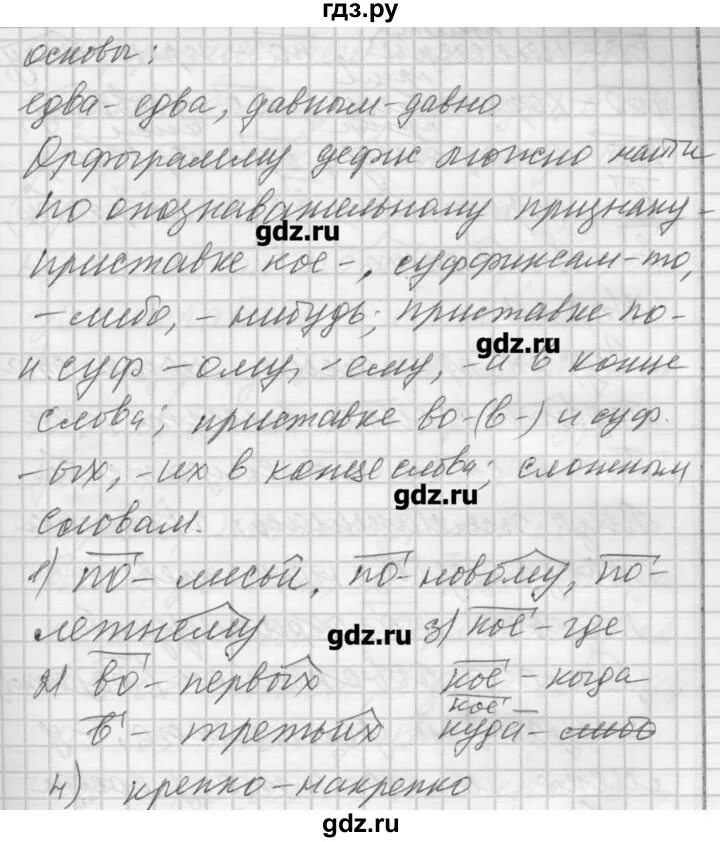 гдз.ру
основы:
едва-едва, давным-давно
Орфограмму дефис можно найти
по опознавательному признаку-
gdz.ru
приставке кое-, суффиксам-то,
-либо, -нибудь; приставке по-
gdz.ru
и суф -ому, -ему, -и в конце
слова; приставке во-(в-) и суф.
-ых, -их в конце слова; сложным
gdz.ru
словам.
1) по-лисьи, по-новому, по-
летнему 3) кое-где
gdz.ru
2) во-первых кое-когда
кое
в-третьих куда-либо
4) крепко-накрепко
gdz.ru